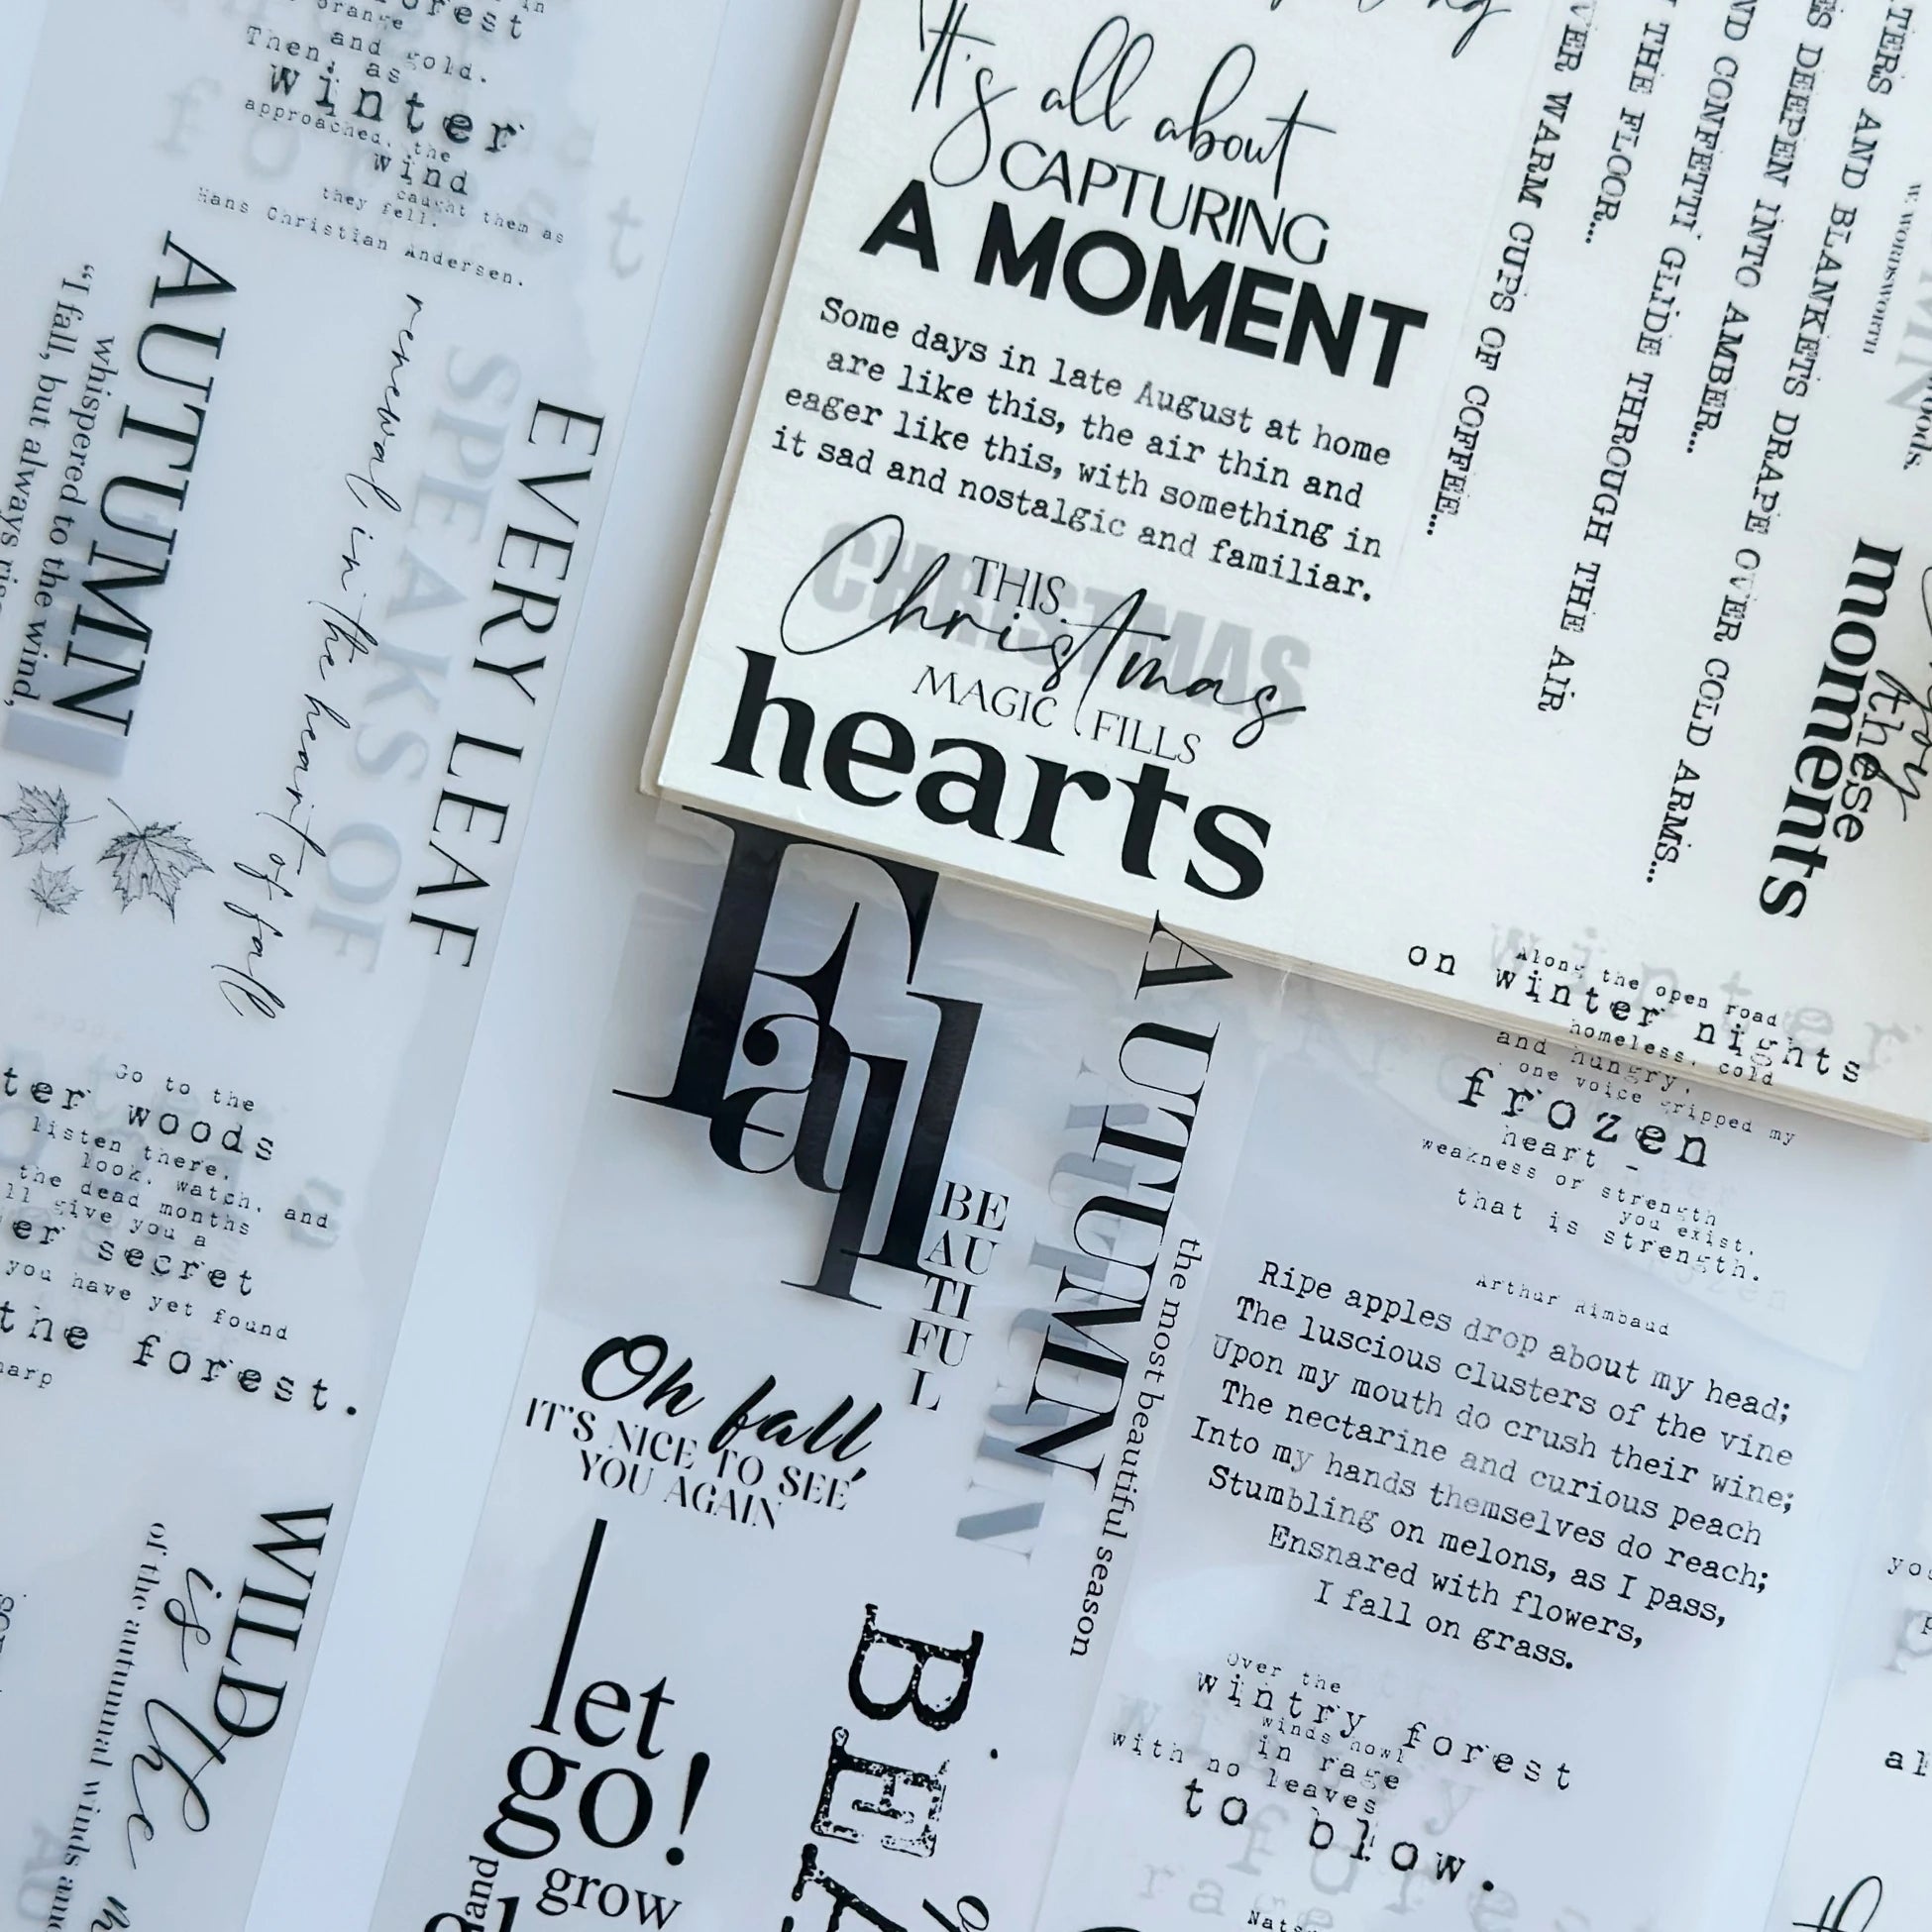 forest
orange
and gold.
Then, as
winter
approached, the
wind
caught them as
they fell.
Hans Christian Andersen.
AUTUMN
whispered to the wind,
"I fall, but always
EVERY LEAF
SPEAKS OF
renewal in the heart of fall
Go to the
woods
listen there,
look, watch, and
the dead months
give you a
secret
you have yet found
the forest.
WILD
is the
of the autumnal winds
It's all about
CAPTURING
A MOMENT
Some days in late August at home
are like this, the air thin and
eager like this, with something in
it sad and nostalgic and familiar.
CHRISTMAS
THIS
Christmas
MAGIC FILLS
hearts
WARM CUPS OF COFFEE...
THE FLOOR...
CONFETTI GLIDE THROUGH THE AIR
DEEPEN INTO AMBER...
AND BLANKETS DRAPE OVER COLD ARMS...
W. WORDSWORTH
these
moments
winter
Along the open road
on winter nights
homeless, cold
and hungry,
one voice gripped my
frozen
heart -
weakness or strength
you exist,
that is strength.
Arthur Rimbaud
Fall
BE
AU
TI
FU
L
AUTUMN
AUTUMN
the most beautiful season
Oh fall,
IT'S NICE TO SEE
YOU AGAIN
let
go!
and
grow
Ripe apples drop about my head;
The luscious clusters of the vine
Upon my mouth do crush their wine;
The nectarine and curious peach
Into my hands themselves do reach;
Stumbling on melons, as I pass,
Ensnared with flowers,
I fall on grass.
Over the
wintry forest
winds howl
in rage
with no leaves
to blow.